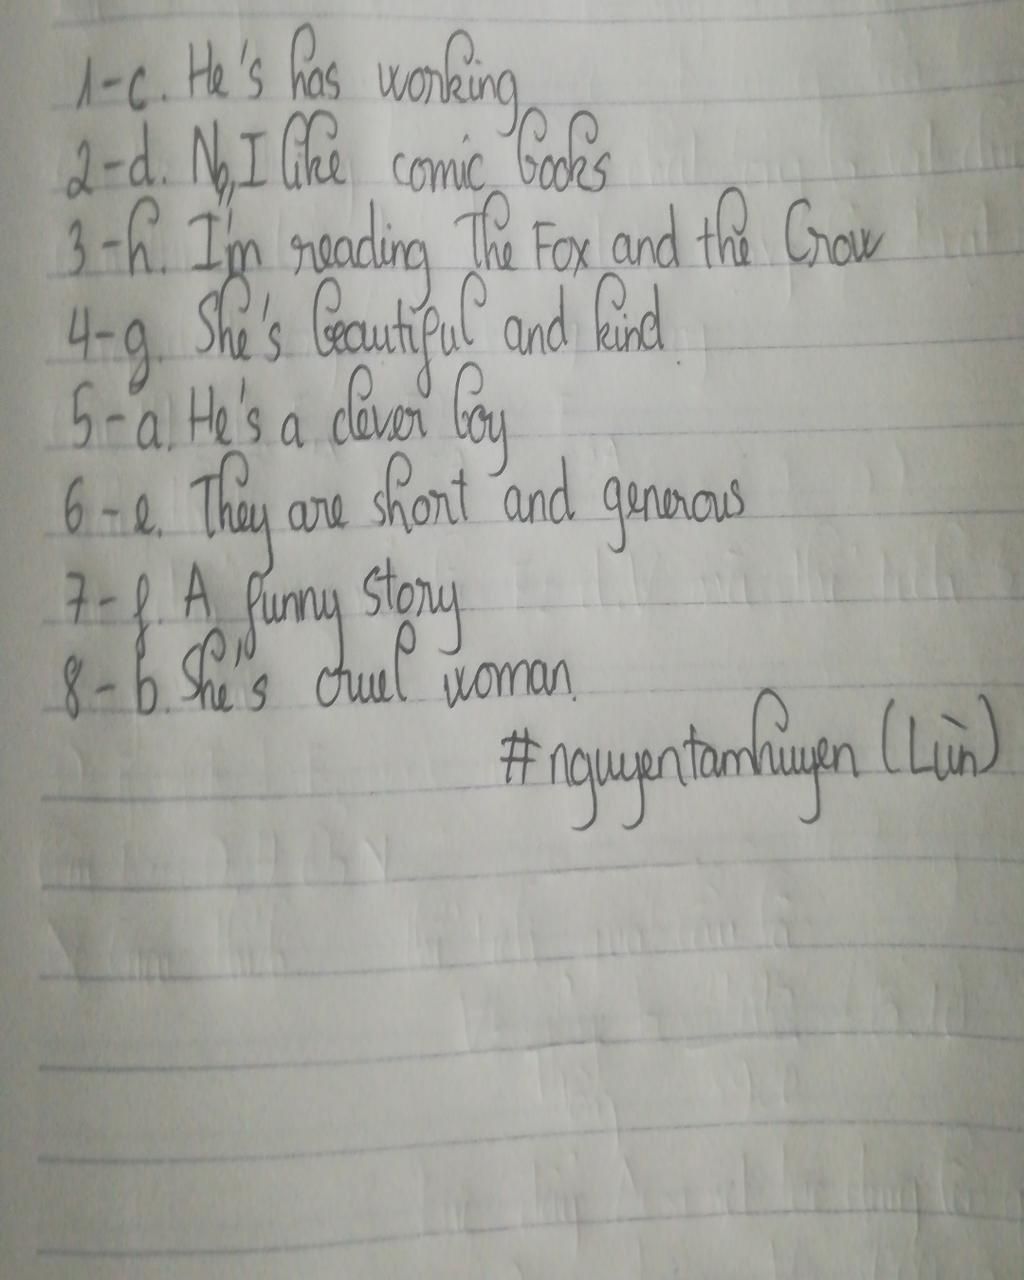 1-c. He's has working
2-d. No, I like comic books
3-h. I'm reading The Fox and the Crow
4-g. She's beautiful and kind.
5-a. He's a clever boy
6-e. They are short and generous
7-f. A funny story
8-b. She's cruel woman.
#nguyentamhuyen (Lùn)